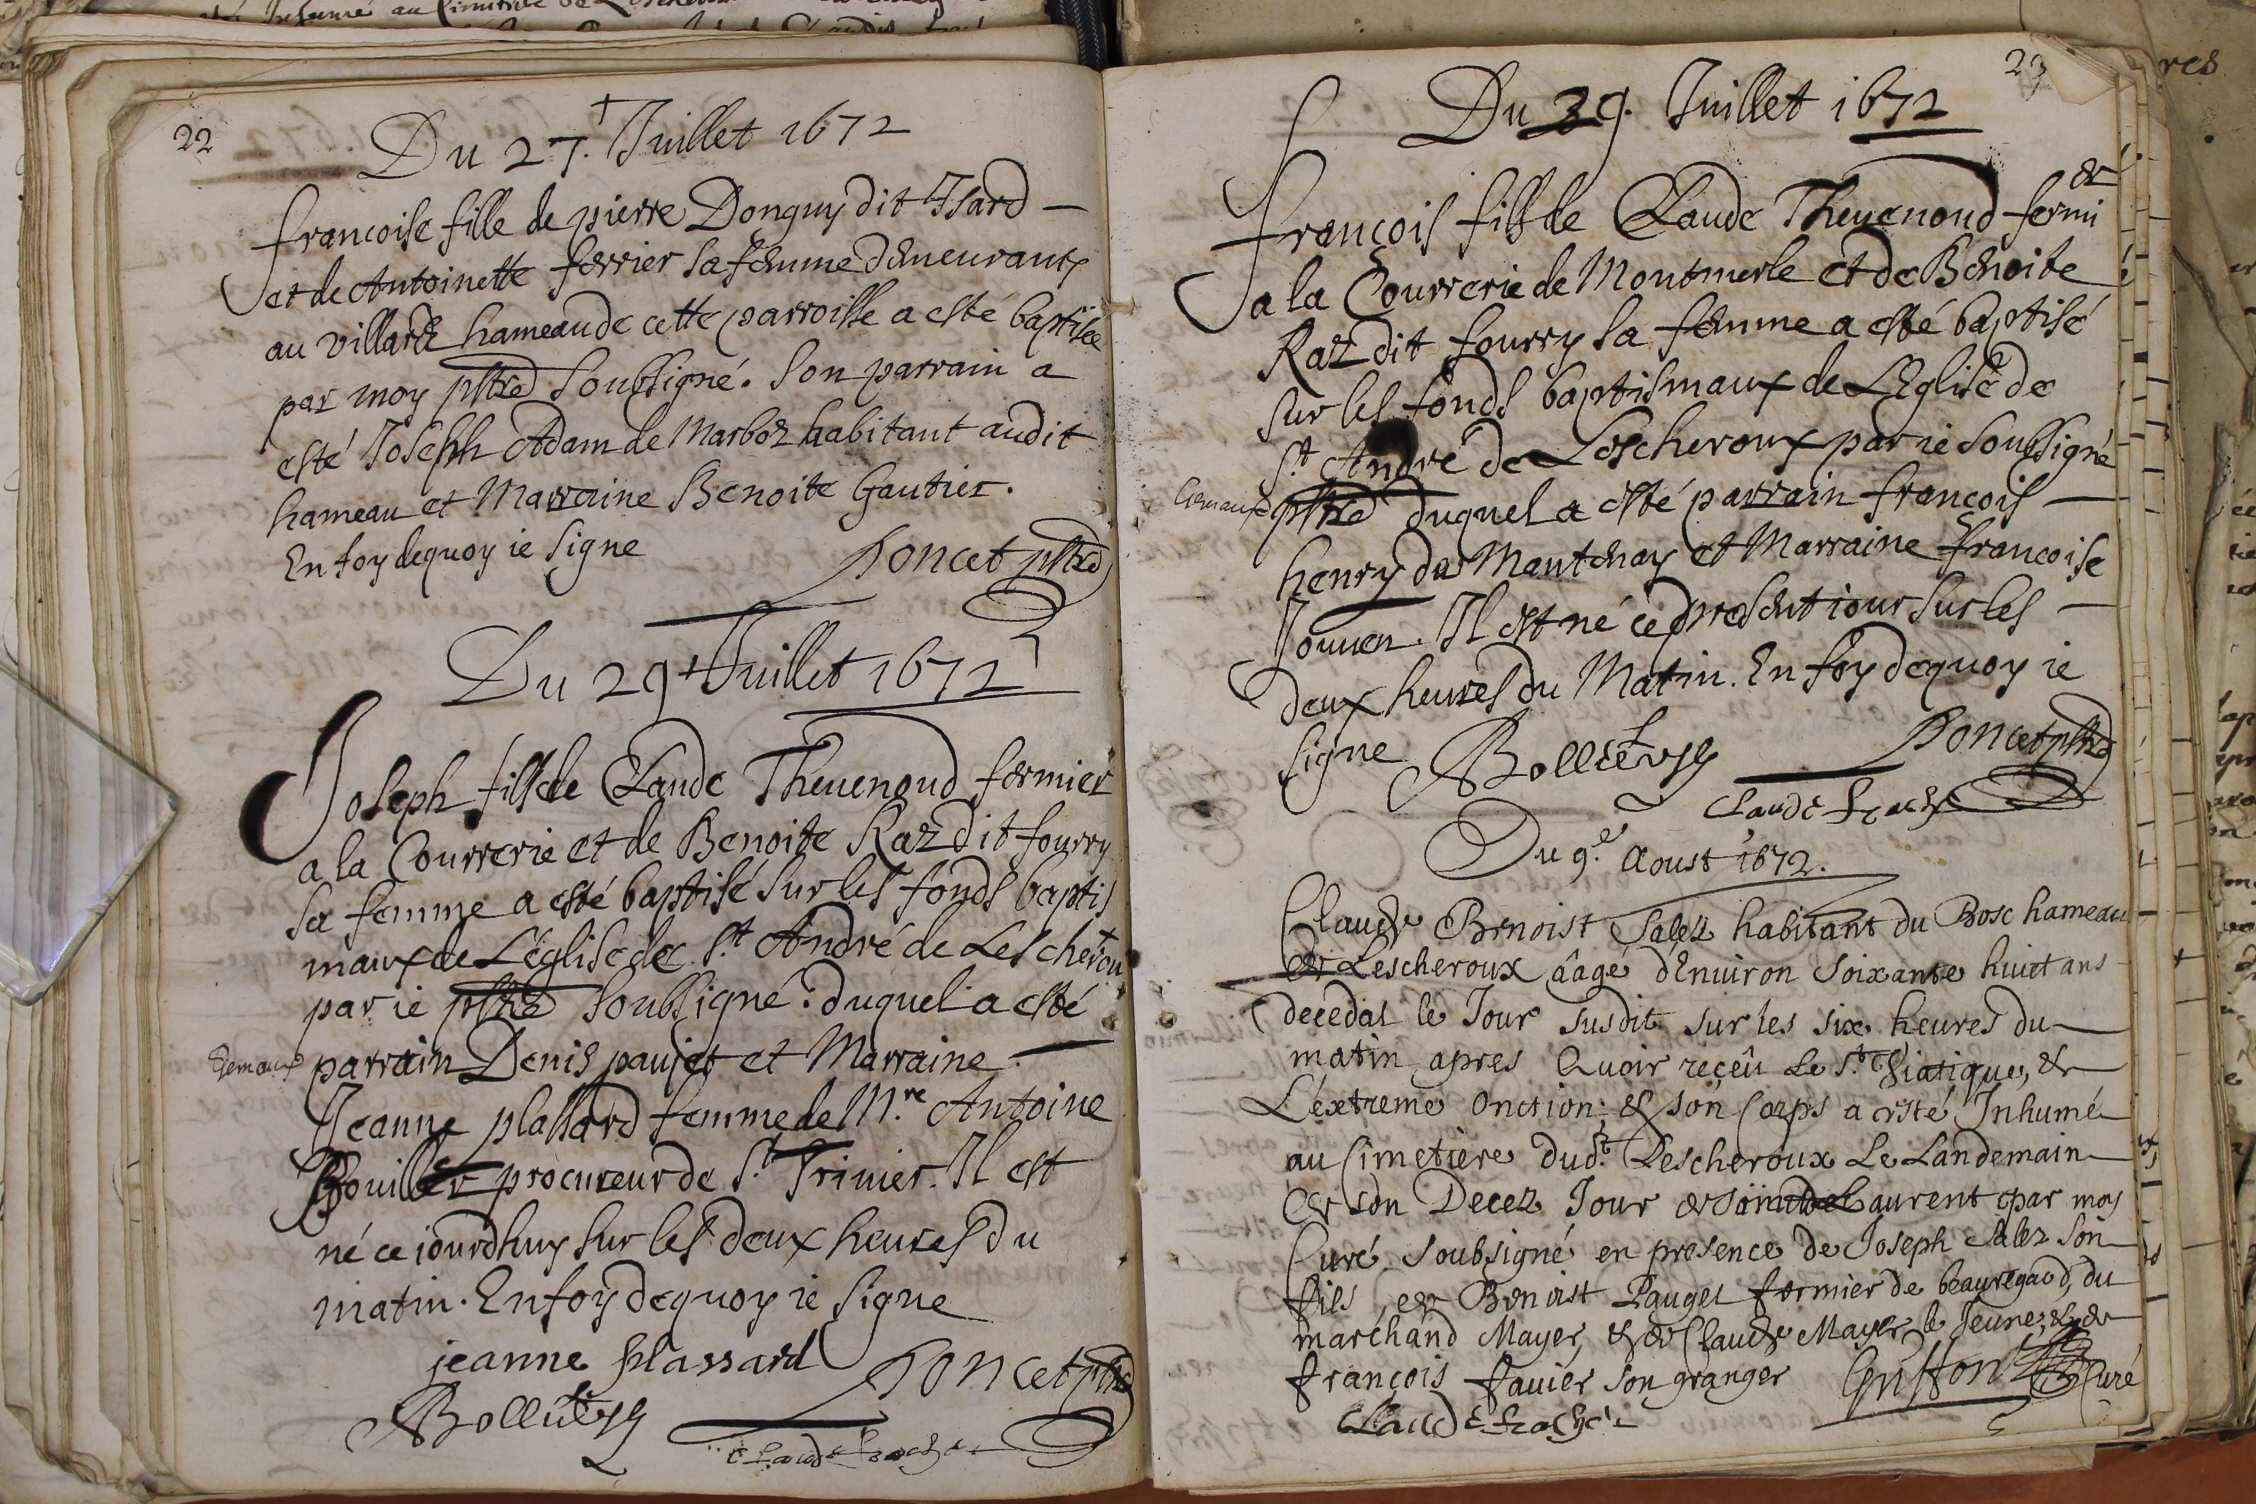 22
Du 27. Juillet 1672
francoise fille de pierre Donguy dit Isard
et de Antoinette ferrier sa femme demeurants
au villard hameau de cette parroisse a esté baptisée
par moy pstre soubsigné. Son parrain a
esté Joseph Adam de Marboz habitant audit
hameau et Marraine Benoite Gautier.
En foy dequoy ie signe
Poncet pstre
Du 29 Juillet 1672
Joseph fils de Claude Theuenoud fermier
a la Courrerie et de Benoite Raz dit fourry
sa femme a esté baptisé sur les fonds baptis
maux de L'église de St André de Lescherou
par ie pstre soubsigné. duquel a esté
Gemaux parrain Denis paujet et Marraine
Jeanne plassard femme de M.re Antoine
Bouillet procureur de St Triuier. Il est
né ce iourdhuy sur les deux heures du
matin. En foy dequoy ie signe
jeanne plassard
Poncet pstre
Claude
23
Du 29. Juillet 1672
François fils de Claude Theuenoud fermi er
a la Courrerie de Montmerle et de Benoite
Raz dit fourry sa femme a esté baptisé
sur les fonds baptismaux de L'Eglise de
St André de Lescheroux par ie soubsigné
Gemaux pstre duquel a esté parrain françois
henry de Mantenay et Marraine francoise
Jouuen. Il est né ce present iour sur les
deux heures du Matin. En foy dequoy ie
signe
Poncet pstre
Claude
Du 9.e Aoust 1672.
Claude Benoist Salez habitant du Bosc hameau
de Lescheroux âagé d'Enuiron soixante huict ans
decedat le Jour susdit sur les six heures du
matin apres Auoir reçeû Le St Viatique, &
L'éxtreme Onction; & son Corps a esté Inhumé
au Cimetiere dud.t Lescheroux Le Landemain
de son Decez Jour de Laurent par moy
Curé soubsigné en presence de Joseph Salez son
fils, et Benoist Pauget fermier de beauregard, du
marchand Mayer, & de Claude Mayer le Jeune, & de
françois fauier son granger
Curé
Claude